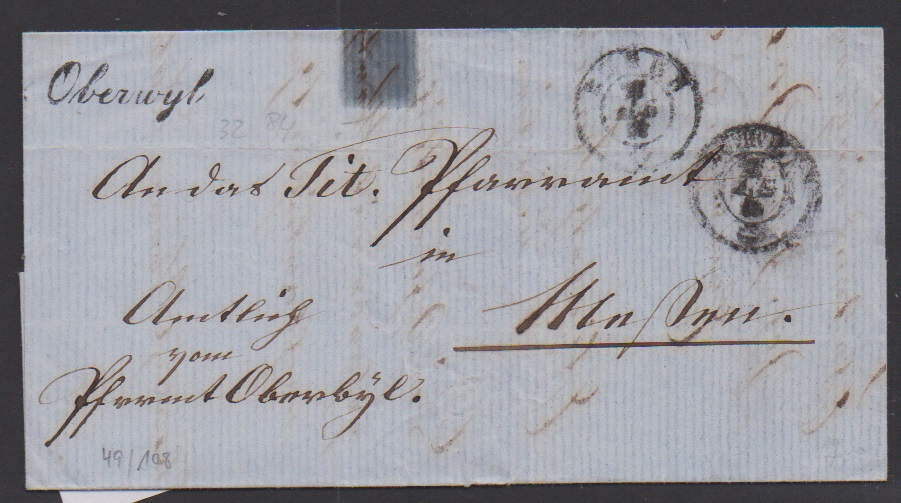 Oberwyl
32 84
An das Tit. Pfarramt
in
Messen.
Amtlich
vom
Pfrmt Oberbÿl.
49/108